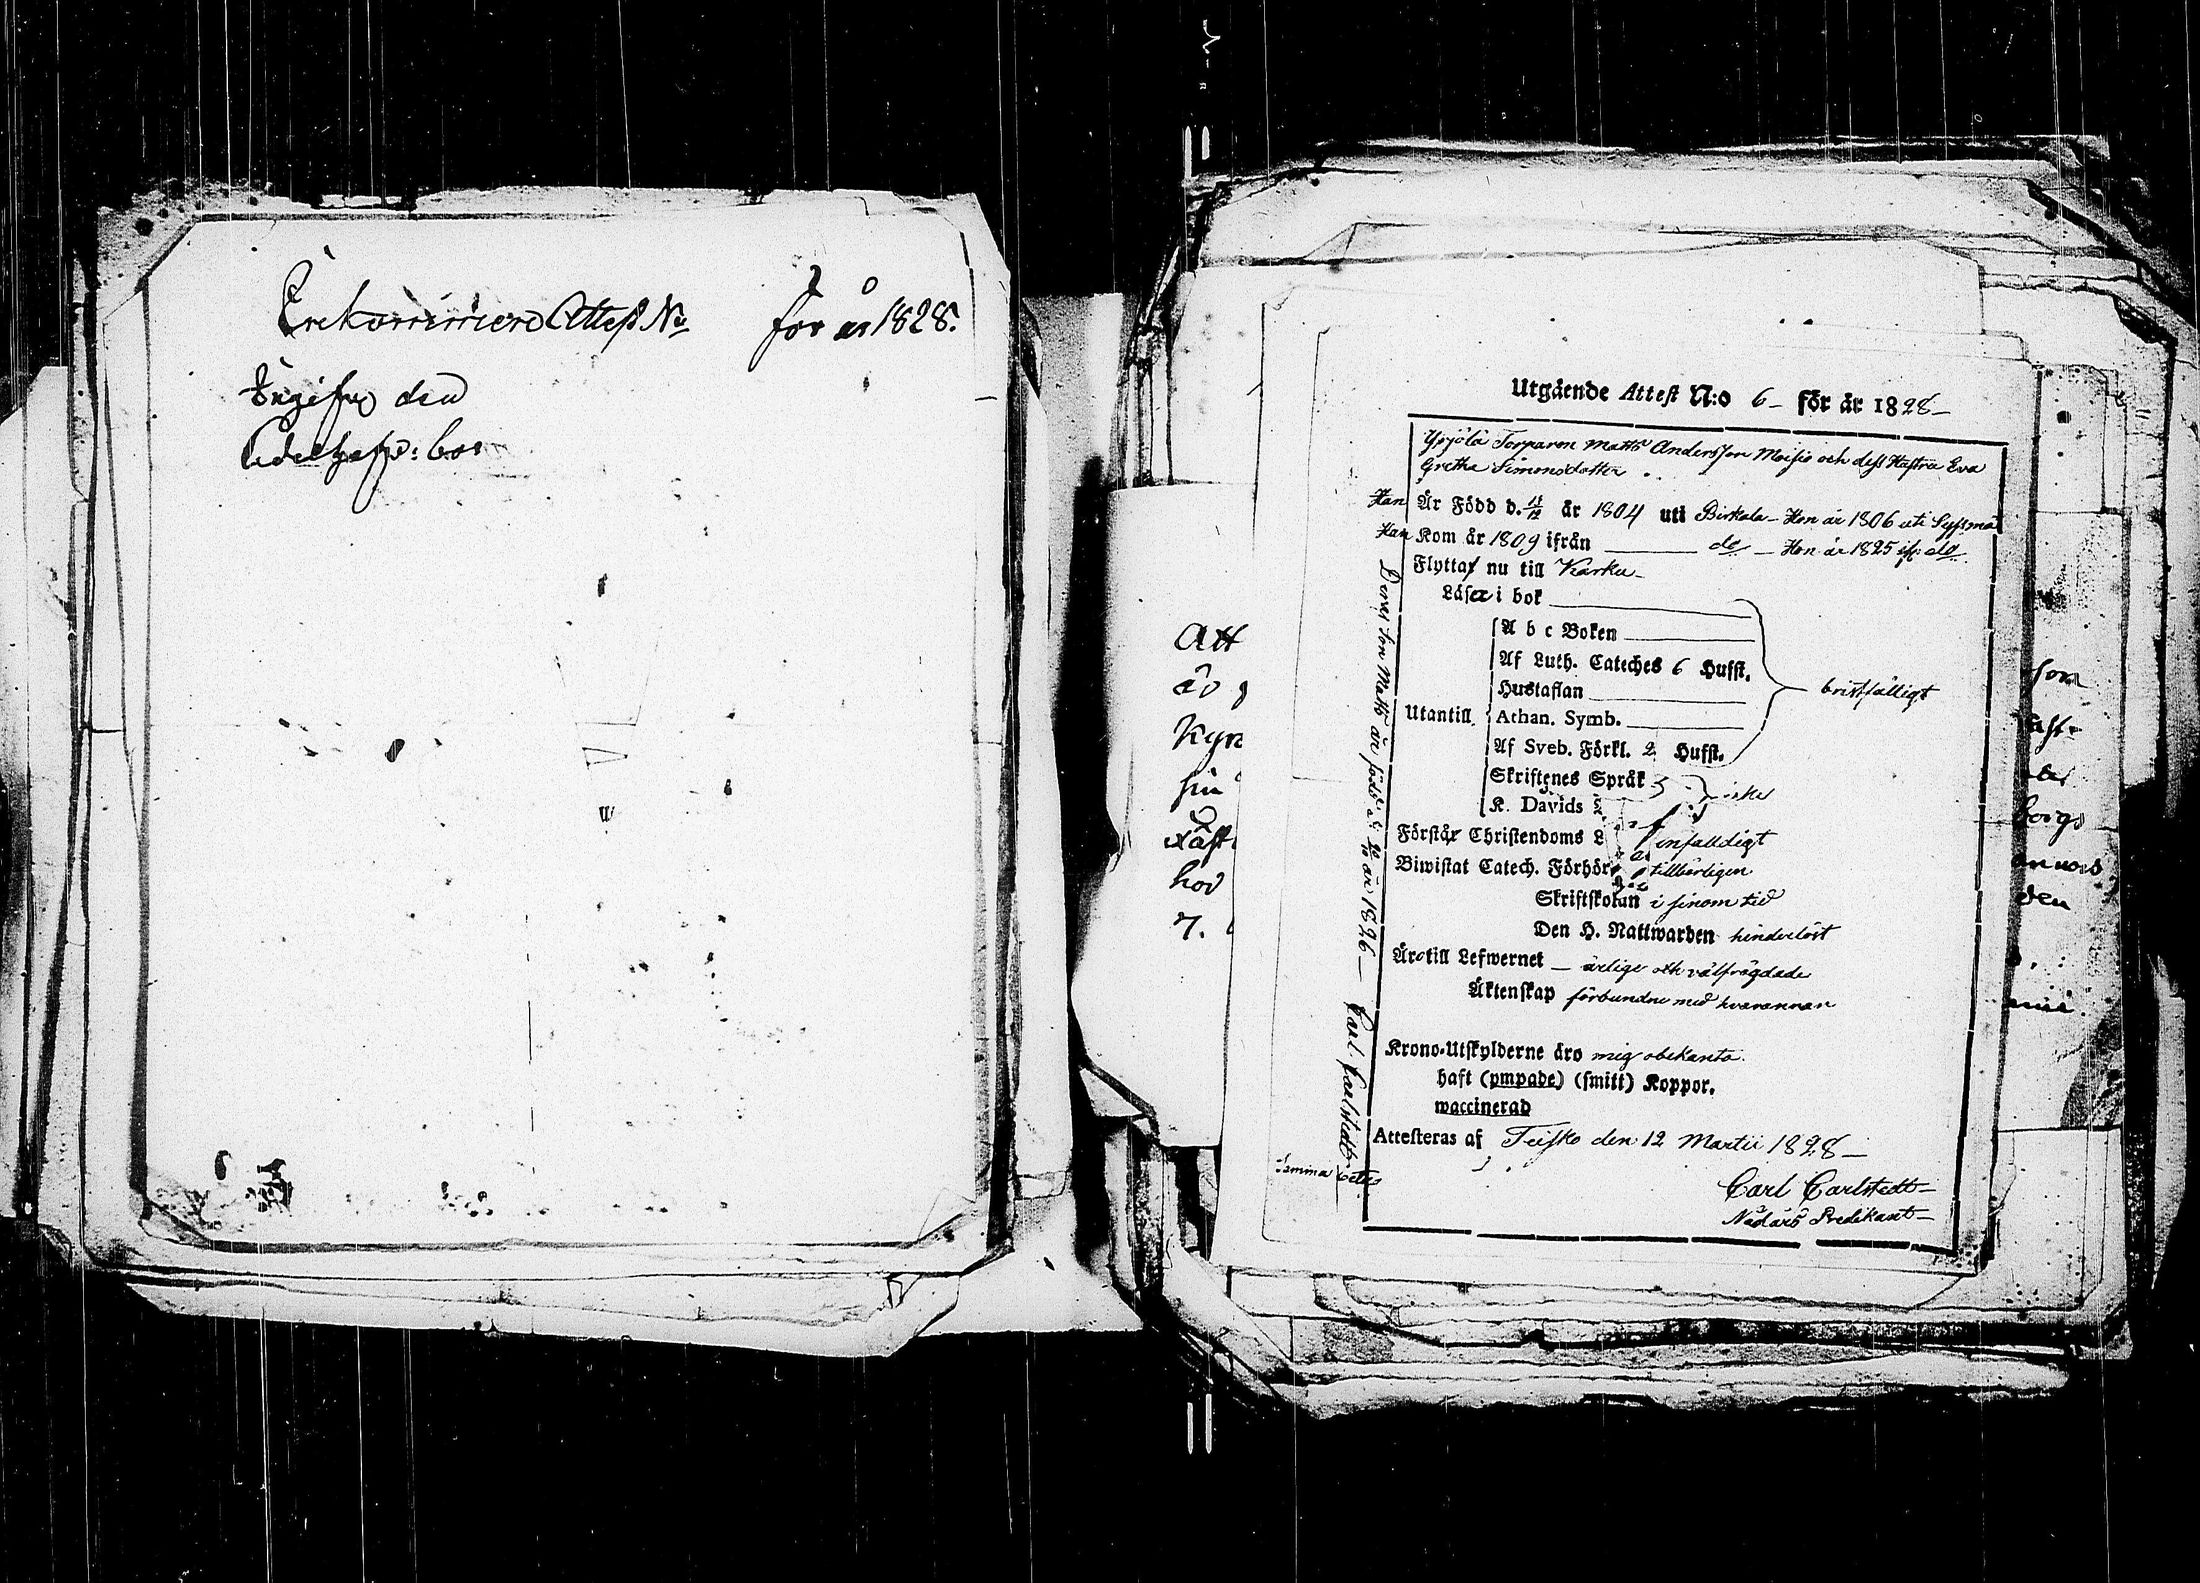 Inkommend Attest No för år 1828.
den
Att
Kyr
sin
hos
7.
Utgående Attest N:o 6 – för år 1828 –
Ypjölä Torparen Matts Andersson Moisio och dess Hustru Eva
Gretha Simonsdotter
Han Är Född d. 11/12 år 1804 uti Birkala – Hon år 1806 uti
Han Kom år 1809 ifrån do – Hon år 1825 ifr: do
Flyttar nu till Karku –
Läsa i bok
A b c Boken
Af Luth. Cateches 6 Hufst.
Hustaflan
bristfälligt
Utantill
Athan. Symb.
Af Sveb. Förkl. 2 Hufst.
Skriftenes Språk
K. Davids
Förstår Christendoms L enfalldigt
Biwistat Catech. Förhör tillbörligen
Skriftskolan i sinom tid
Den H. Nattwarden hinderlöst
Äro till Lefwernet – ärlige och välfrägdade
Äktenskap förbundne med hvarannan
Krono-Utskylderne äro mig obekanta.
haft (ympade) (smitt) Koppor.
waccinerad
Attesteras af Teisko den 12 Martii 1828 –
Carl Carlstedt –
Nådårs Predikant –
Deras son Matts är född d. år 1826 – Carl Carlstedt
som
den